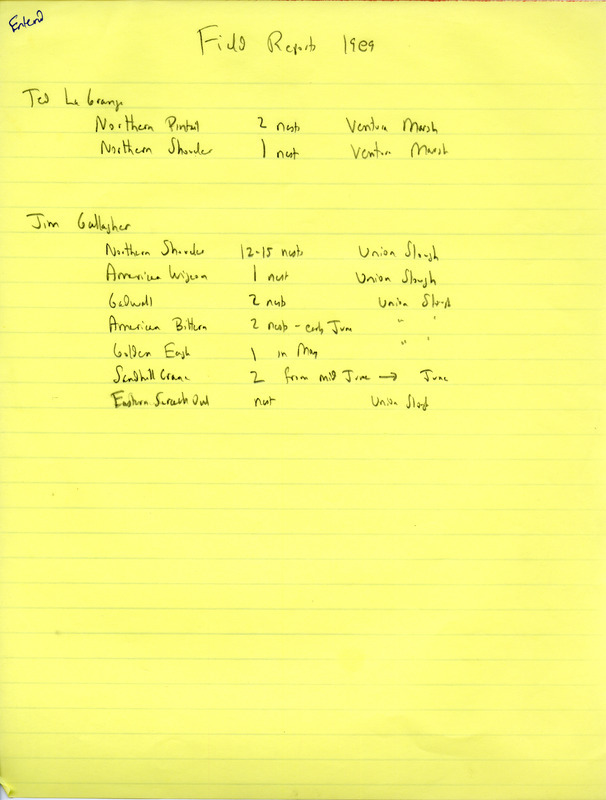 Entered
Field Reports 1989
Ted LaGrange
Northern Pintail 2 nests Ventura Marsh
Northern Shoveler 1 nest Ventura Marsh
Jim Gallagher
Northern Shoveler 12-15 nests Union Slough
American Wigeon 1 nest Union Slough
Gadwall 2 nests Union Slough
American Bittern 2 nests - early June " "
Golden Eagle 1 in May " "
Sandhill Crane 2 from mid June → June
Eastern Screech Owl nest Union Slough